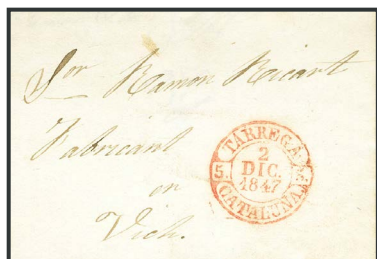 Sor Ramon Ricart
Fabricant
en
Vich.
TARREGA
2
DIC.
1847
5.
CATALUÑA